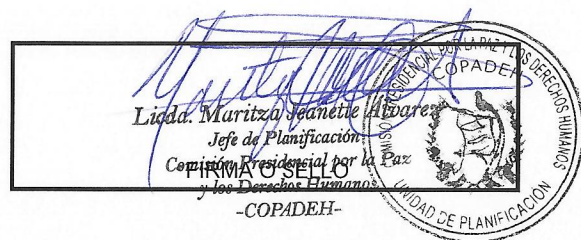 Licda. Maritza Jeanette Alvarez
Jefe de Planificación
Comisión Presidencial por la Paz
FIRMA O SELLO
y los Derechos Humanos
-COPADEH-
COMISIÓN PRESIDENCIAL POR LA PAZ Y LOS DERECHOS HUMANOS
COPADEH
UNIDAD DE PLANIFICACIÓN